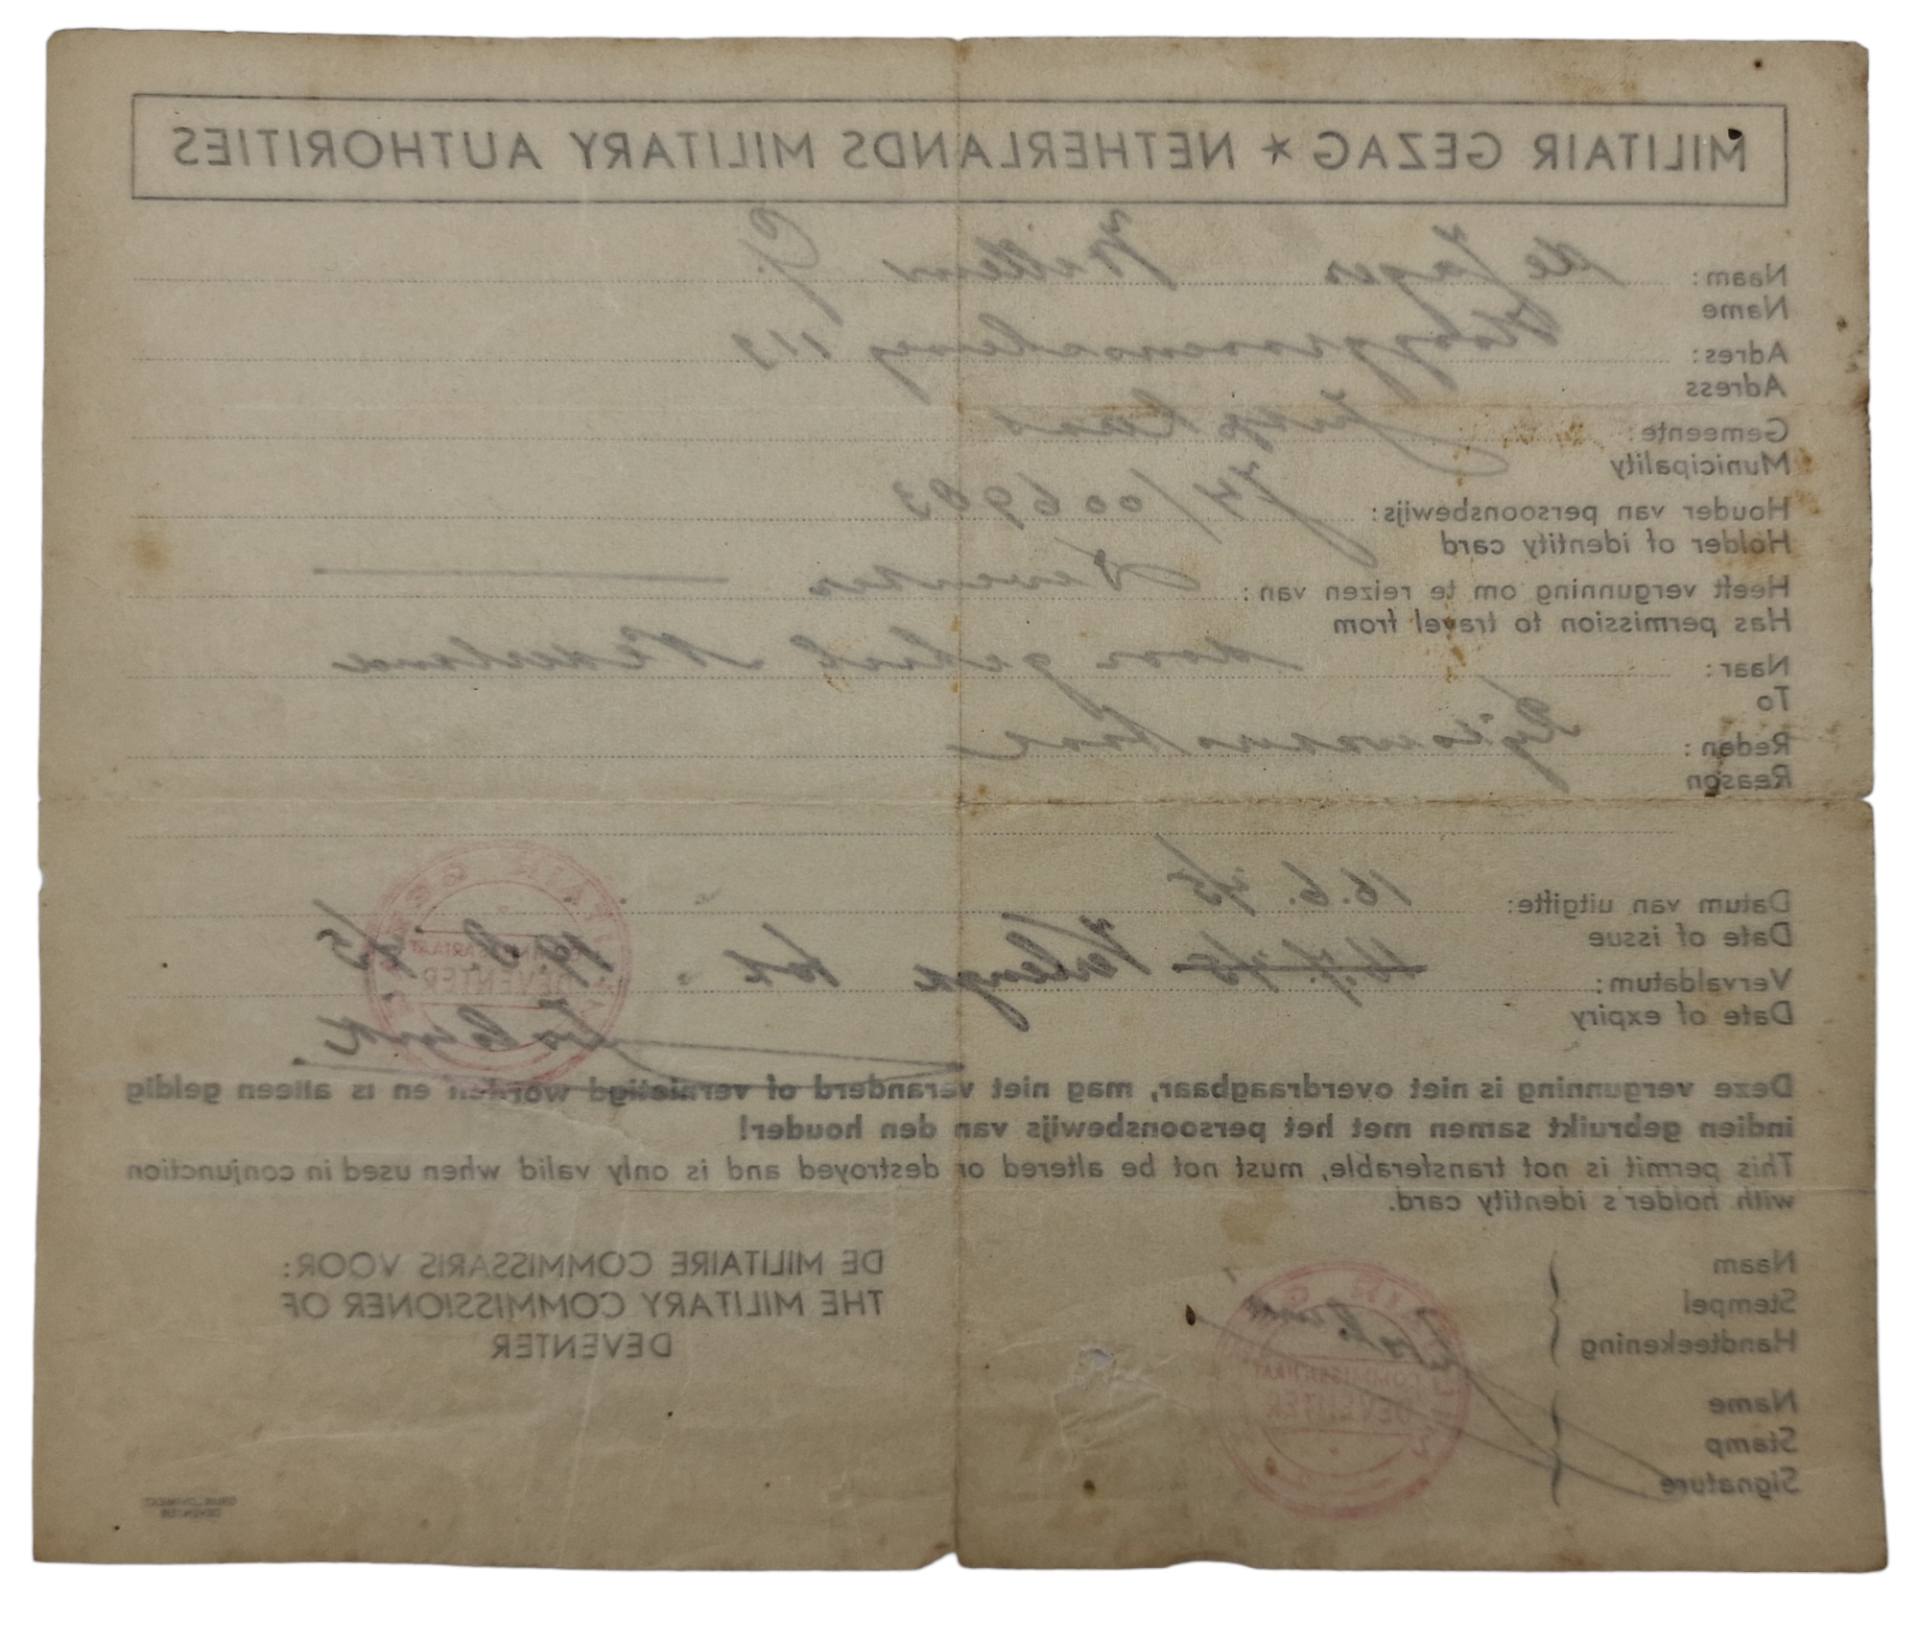 MILITAIR GEZAG * NETHERLANDS MILITARY AUTHORITIES
Naam: de Jager Willem G.
Name
Adres: 113
Adress
Gemeente:
Municipality
Houder van persoonsbewijs: J4/006983
Holder of identity card
Heeft vergunning om te reizen van: Deventer
Has permission to travel from
Naar: door geheel Nederland
To
Reden:
Reason
Datum van uitgifte: 16.6.'45
Date of issue
Vervaldatum: 16.7.'45 Verlengd tot 19.8.'45
Date of expiry
Deze vergunning is niet overdraagbaar, mag niet veranderd of vernietigd worden en is alleen geldig
indien gebruikt samen met het persoonsbewijs van den houder!
This permit is not transferable, must not be altered or destroyed and is only valid when used in conjunction
with holder's identity card.
Naam
Stempel
Handteekening
Name
Stamp
Signature
COMMISSARIAAT
DEVENTER
DE MILITAIRE COMMISSARIS VOOR:
THE MILITARY COMMISSIONER OF
DEVENTER